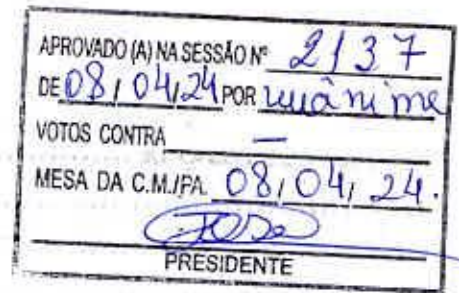 APROVADO (A) NA SESSÃO Nº 2137
DE 08/04/24 POR unânime
VOTOS CONTRA —
MESA DA C.M./PA. 08/04/24.
PRESIDENTE